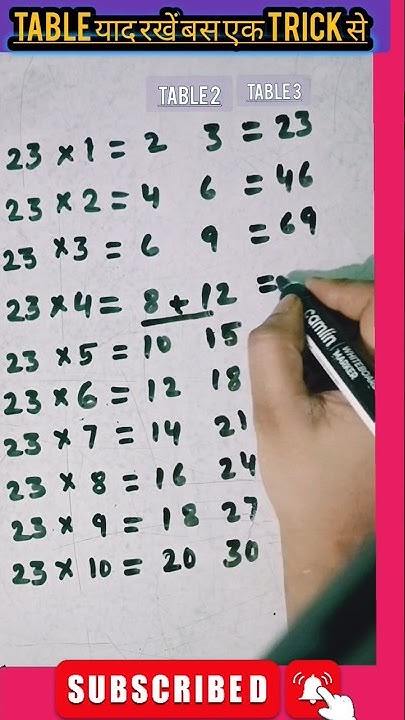 TABLE याद रखें बस एक TRICK से
TABLE 2 TABLE 3
23 × 1 = 2 3 = 23
23 × 2 = 4 6 = 46
23 × 3 = 6 9 = 69
23 × 4 = 8 + 12 =
camlin WHITEBOARD MARKER
23 × 5 = 10 15
23 × 6 = 12 18
23 × 7 = 14 21
23 × 8 = 16 24
23 × 9 = 18 27
23 × 10 = 20 30
SUBSCRIBED